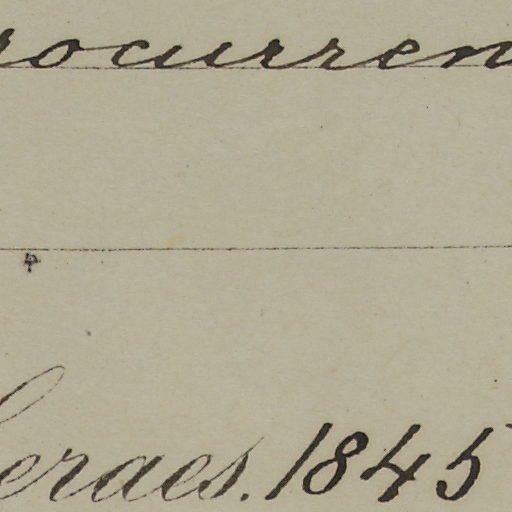 rocurren
Geraes. 1845